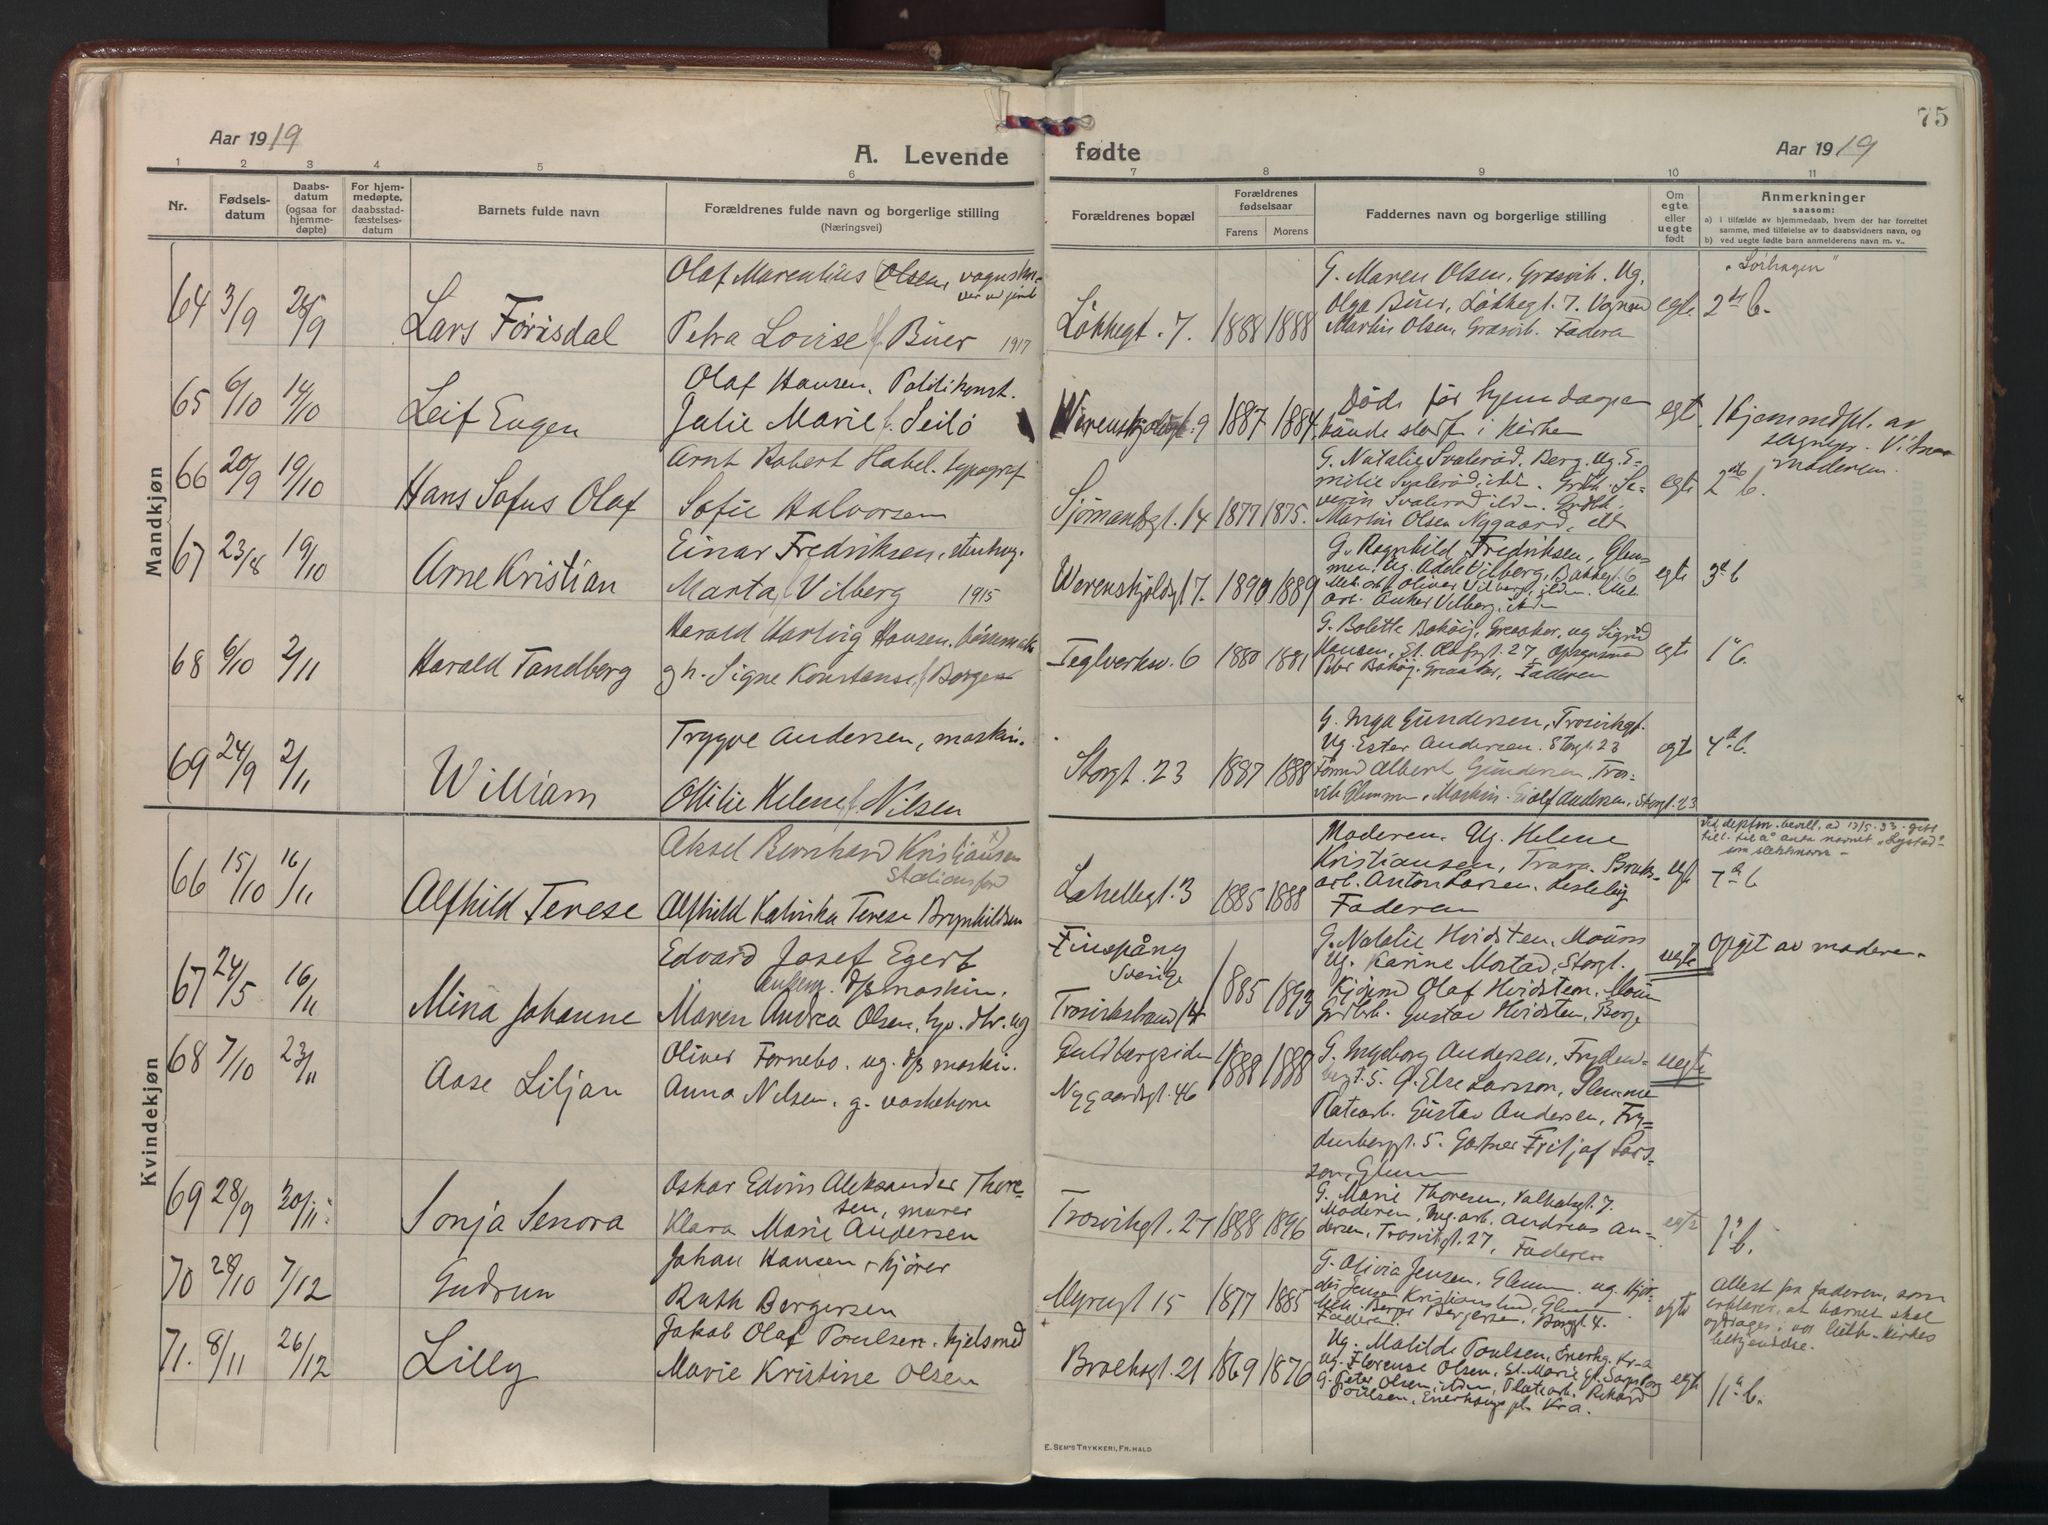 75
Aar 1919
A. Levende fødte
Aar 1919
1 2 3 4 5 6 7 8 9 10 11
Nr.
Fødsels-
datum
Daabs-
datum
(ogsaa for
hjemme-
døpte)
For hjem-
medøpte,
daabsstad-
fæstelses-
datum
Barnets fulde navn
Forældrenes fulde navn og borgerlige stilling
(Næringsvei)
Forældrenes bopæl
Forældrenes
fødselsaar
Farens Morens
Faddernes navn og borgerlige stilling
Om
egte
eller
uegte
født
Anmerkninger
saasom:
a) i tilfælde av hjemmedaab, hvem der har forrettet
samme, med tilføielse av to daabsvidners navn, og
b) ved uegte fødte barn anmelderens navn m. v.
Mandkjøn
64 3/9 28/9 Lars Forisdal
Olaf Marentius Olsen,
Petra Lovise f. Büer 1917
Løkkegt. 7. 1888 1888
G. Maren Olsen, Græsvik. Ug.
Olga Büer, Løkkegt. 7.
Martin Olsen, Græsvik. Faderen
egte 2det b.
65 6/10 14/10 Leif Eugen
Olaf Hansen, Politikonst.
Julie Marie f. Seilø
Werenskjoldgt. 9 1887 1884.
Døde før hjemdaapen
kunde stadf. i kirke
egte 1 Hjemmedpt. av
moderen.
66 20/9 19/10 Hans Sofus Olaf
Arnt Robert Habel. typograf
Sofie Halvorsen
Sjømandsgt. 14 1877 1875.
G. Natalie Svalerød, Berg. Ug. E-
milie Svalerød, Se-
verin Svalerød
Martin Olsen Nygaard,
egte 2det b.
67 23/8 19/10 Arne Kristian
Einar Fredriksen, stenhug.
Marta f. Vilberg 1915
Werenskjoldgt 7. 1890 1889
G. Ragnhild Fredriksen, Glem-
men, Ug. Vilberg, Bakkegt. 6
Oliver Vilberg,
arb. Anker Vilberg,
egte 3de b
68 6/10 2/11 Harald Tandberg
Harald Hartvig Hansen,
gh. Signe Konstanse f. Borgen
Teglverksv. 6 1880 1881
G. Bolette Bakøy, Greaaker, ug Sigrid
Hansen, St. Olafsgt. 27
Peter Bakøy. Greaaker, Faderen
egte 1ste b.
69 24/9 2/11 William
Trygve Andersen, maskin.
Ottilie Helene f. Nilsen
Storgt. 23 1887 1888
G. Inga Gundersen, Trosvikgt.
Ug. Ester Andersen. Storgt. 23
Formd Albert Gundersen, Tros-
vik Glemmen, Maskin. Eiolf Andersen, Storgt. 23
egte 4de b.
Kvindekjøn
66 15/10 16/11 Alfhild Terese
Aksel Bernhard Kristiansen x)
Stationsfor
Alfhild Katinka Terese Brynhildsen
Lakellegt. 3 1885 1888
Moderen. Ug. Helene
Kristiansen, Trara. Bruks-
arb. Anton Larsen. Lisleby
Faderen
egte
Ved deptm. bevill. ad 12/5 33 gitt
till. til å anta navnet „Lystad"
som slektsnavn
1ste b
67 24/5 16/11 Mina Johanne
Edvard Josef Egert
maskin.
Maren Andrea Olsen,
Finspång
Sverige
Trosvikstrand 14 1885 1893
G. Natalie Hvidsten, Moum
Ug. Karine Morstad, Storgt.
Olaf Hvidsten, Moum
Gustav Hvidsten, Borge
uegte
Opgit av moderen.
68 7/10 23/11 Aase Liljan
Oliver Fornebo. ug. maskin.
Anna Nilsen. g. vaskekone
Guldbergsiden
Nygaardsgt. 46 1888 1888
G. Ingeborg Andersen, Fryden-
bergt. 5. G. Else Larsson, Glemmen
Platearb. Gustav Andersen, Fry-
denbergt. 5. Gartner Fritjof Lars-
son, Glemm
uegte
69 28/9 30/11 Sonja Senora
Oskar Edvin Aleksander Thore-
sen, murer
Klara Marie Andersen
Trosvikgt. 27 1888 1896
G. Marie Thoresen, Valhalsgt. 7.
Moderen, arb. Andreas An-
dersen, Trosvikgt. 27, Faderen
egte 1ste b.
70 28/10 7/12 Gudrun
Johan Hansen, kjører
Ruth Bergersen
Myragt 15 1877 1885
G. Olivia Jensen, Glemm
Jensen Kristianslund, Glemm
Bergersen, Borggt. 4.
Faderen
egte
Attest fra faderen, som
erklærer, at barnet skal
opdrages i vor luth. kirkes
bekjendelse.
71. 8/11 26/12 Lilly
Jakob Olaf Poulsen, kjelsmed
Marie Kristine Olsen
Brochsgt. 21 1869 1876
Ug. Matilde Poulsen, Enerhg. Kr.a
Ug. Florense Olsen, St. Marie gt. Sarpsborg
G. Peter Olsen, Platearb. Rikard
Poulsen, Enerhaugs pl. Kr.a.
egte 11te b.
E. SEM'S TRYKKERI, FR.HALD